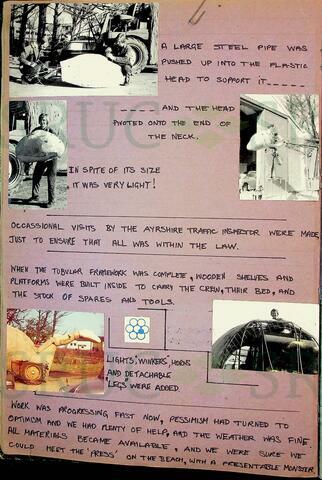 A LARGE STEEL PIPE WAS
PUSHED UP INTO THE PLASTIC
HEAD TO SUPPORT IT_____
_____AND THE HEAD
PIVOTED ONTO THE END OF
THE NECK.
IN SPITE OF ITS SIZE
IT WAS VERY LIGHT!
OCCASSIONAL VISITS BY THE AYRSHIRE TRAFFIC INSPECTOR WERE MADE
JUST TO ENSURE THAT ALL WAS WITHIN THE LAW.
WHEN THE TUBULAR FRAMEWORK WAS COMPLETE, WOODEN SHELVES AND
PLATFORMS WERE BUILT INSIDE TO CARRY THE CREW, THEIR BED, AND
THE STOCK OF SPARES AND TOOLS.
LIGHTS, WINKERS, HORNS
AND DETACHABLE
LEGS WERE ADDED.
WORK WAS PROGRESSING FAST NOW, PESSIMISM HAD TURNED TO
OPTIMISM AND WE HAD PLENTY OF HELP, AND THE WEATHER WAS FINE.
ALL MATERIALS BECAME AVAILABLE, AND WE WERE SURE WE
COULD MEET THE 'PRESS' ON THE BEACH, WITH A PRESENTABLE MONSTER